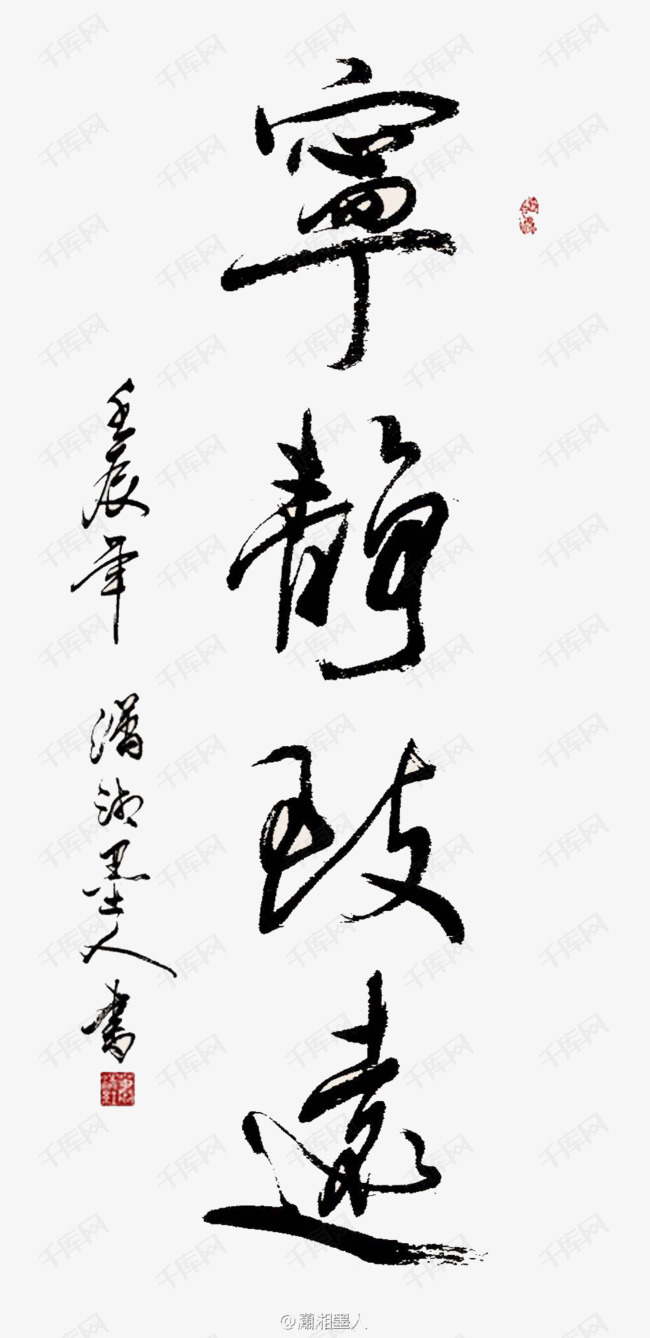 寧靜致遠
壬辰年 瀟湘墨人書
@瀟湘墨人
千库网